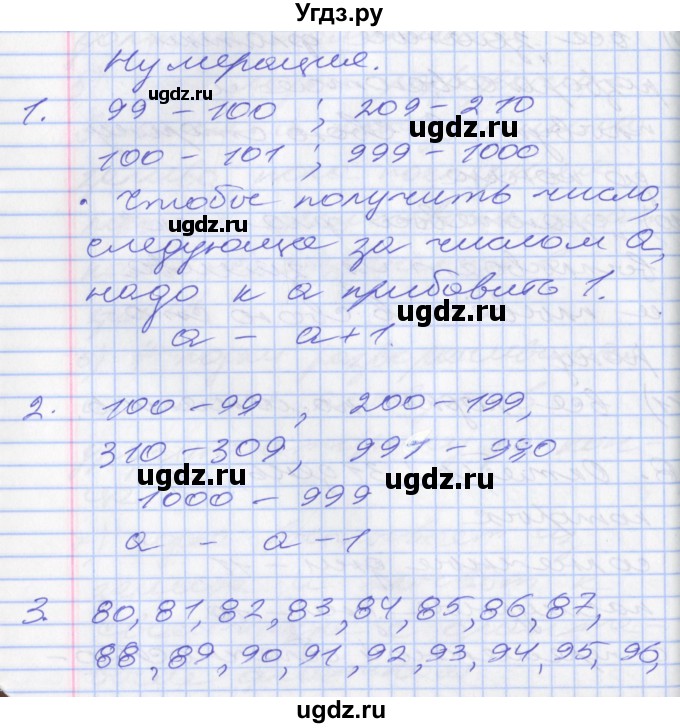 Угдз.ру
Нумерация.
1. 99 – 100 ; 209 – 210
ugdz.ru
ugdz.ru
100 – 101 ; 999 – 1000
• Чтобы получить число,
ugdz.ru
следующе за числом а,
надо к а прибавить 1.
ugdz.ru
а – а+1.
2. 100 – 99 , 200 – 199,
310 – 309, 991 – 990
ugdz.ru
ugdz.ru
1000 – 999
ugdz.ru
а – а – 1
3. 80, 81, 82, 83, 84, 85, 86, 87,
88, 89, 90, 91, 92, 93, 94, 95, 96,
ugdz.ru
ugdz.ru